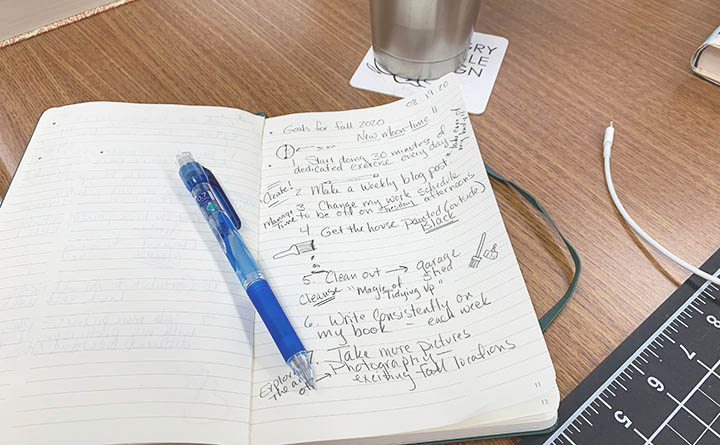 GRY
LE
GN
08.19.20
Goals for Fall 2020
New moon-time
take care of
my body
1. Start doing 30 minutes of
dedicated exercise every day
Create!
2. Make a weekly blog post
Manage
time
3. Change my work schedule
to be off on Tuesday afternoons
4. Get the house painted (outside)
Black
5. Clean out → garage
shed
Cleanse "Magic of
Tidying up"
6. Write consistently on
my book - each week
7. Take more pictures
Explore
the art
of → Photography -
exciting Fall locations
11
12
8
7
6
5